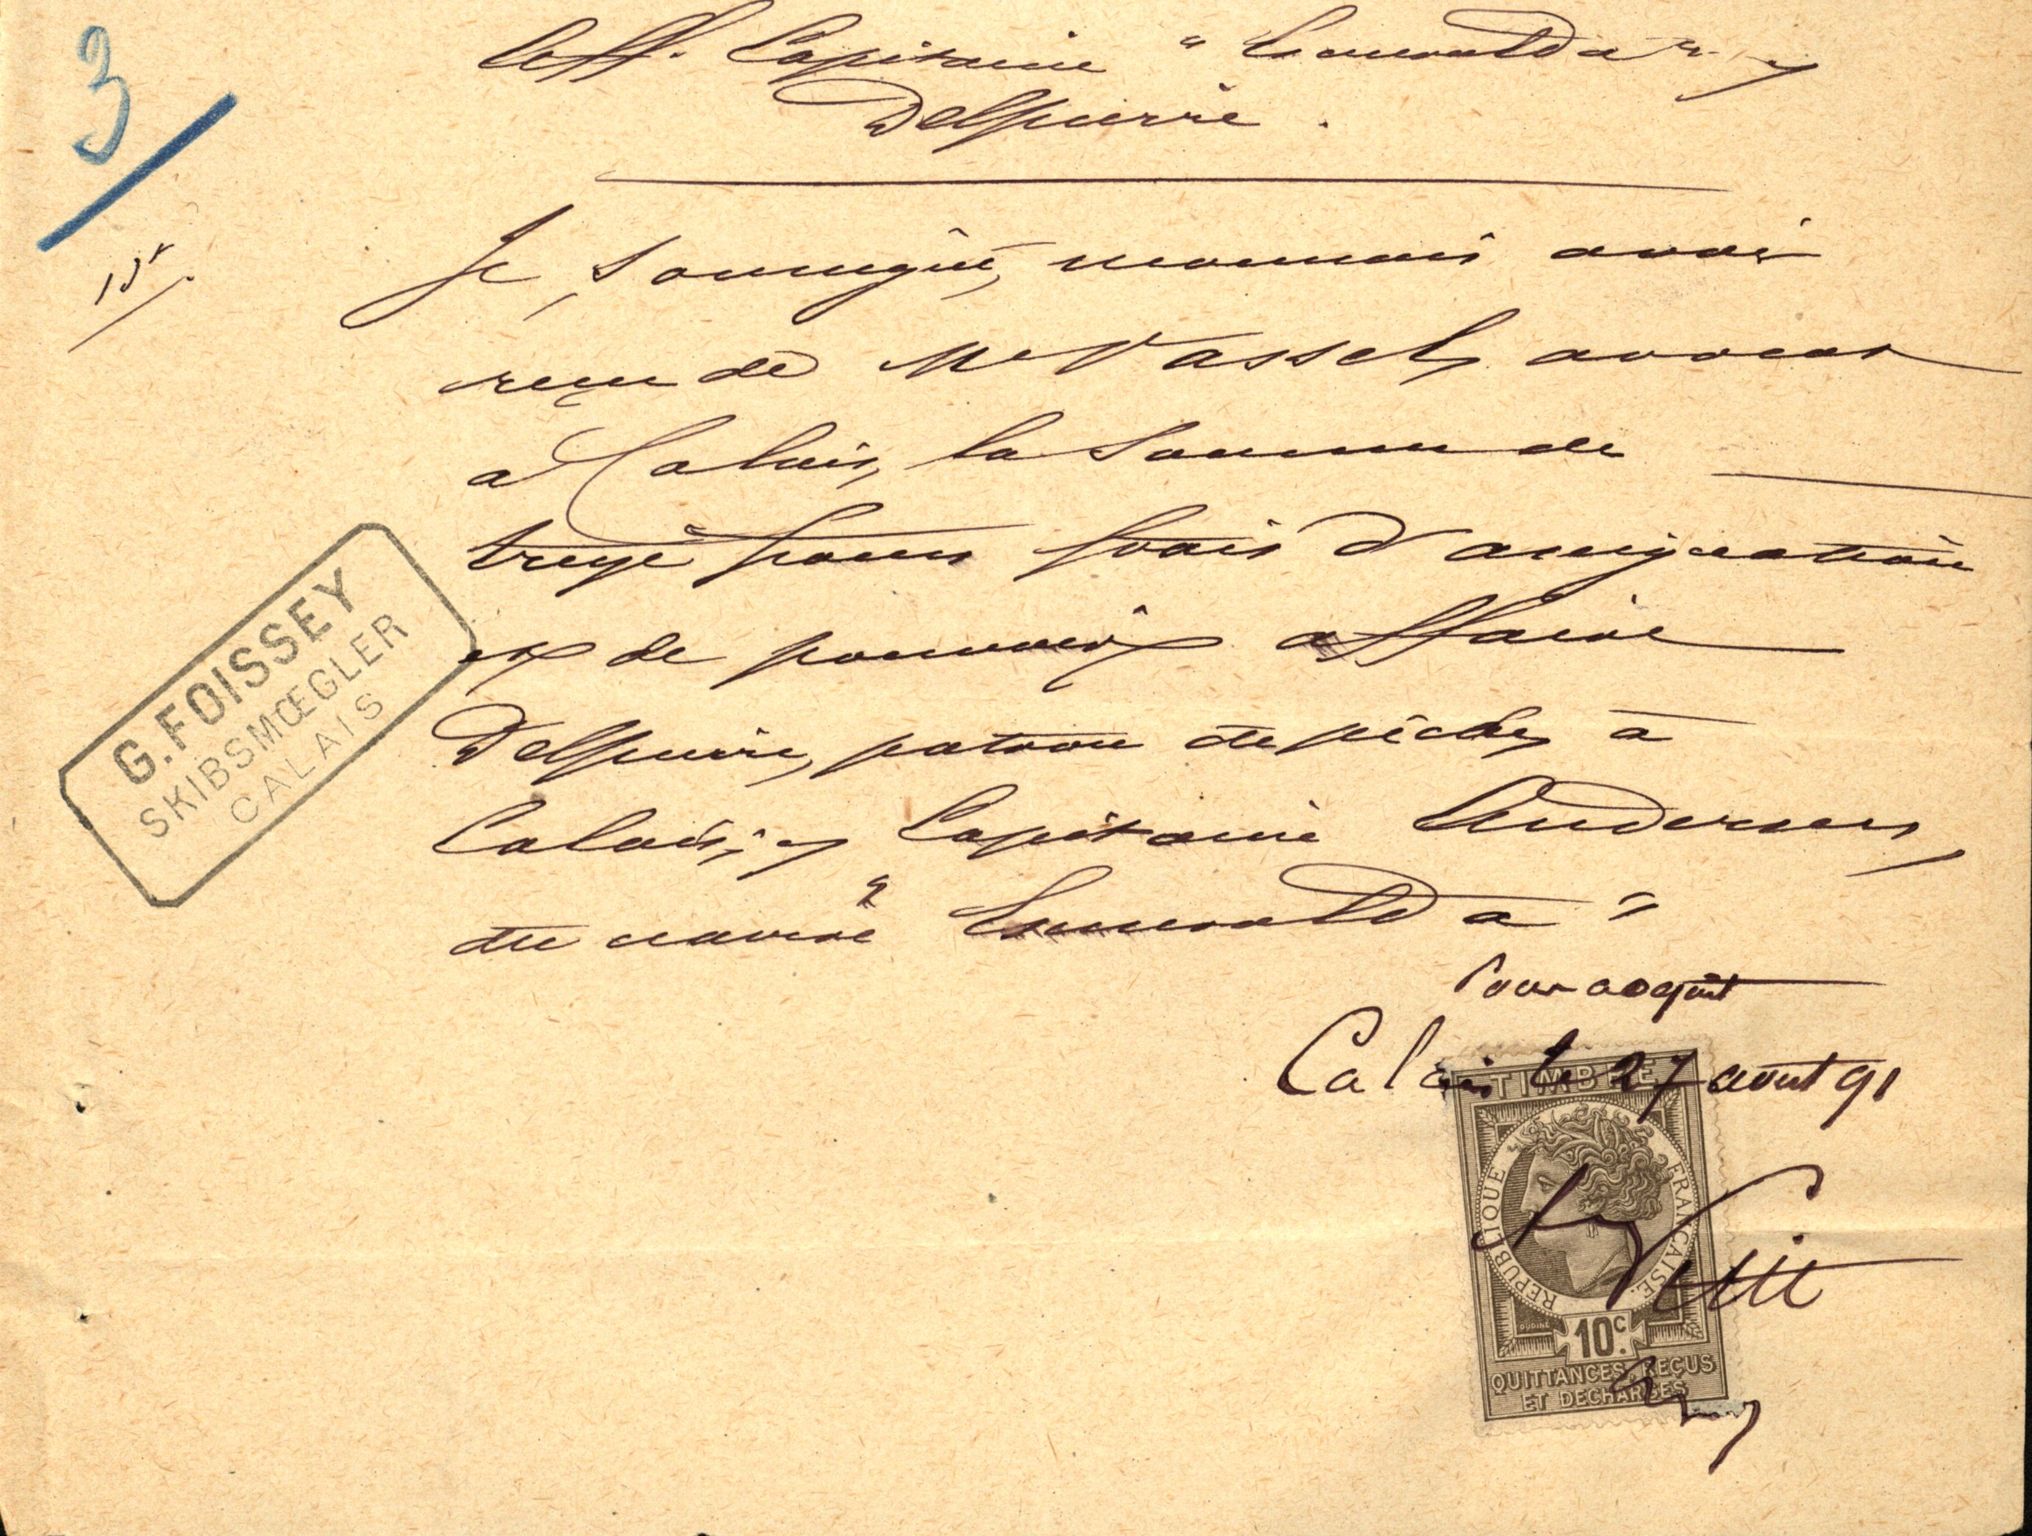 3
Aff. Capitaine "Esmeralda" c/
Delpierre.
13f
Je, soussigné, reconnais avoir
reçu de Me Vassel, avocat
à Calais, la somme de
treize pour frais d'assignation
et de pouvoir affaire
Delpierre, patron de pêche, à
Calais, c/ Capitaine Andersen,
du navire "Esmeralda"
G. FOISSEY
SKIBSMŒGLER
CALAIS
Pour acquit
Calais le 27 août 91
TIMBRE
RÉPUBLIQUE FRANÇAISE.
10c.
QUITTANCES, REÇUS
ET DÉCHARGES